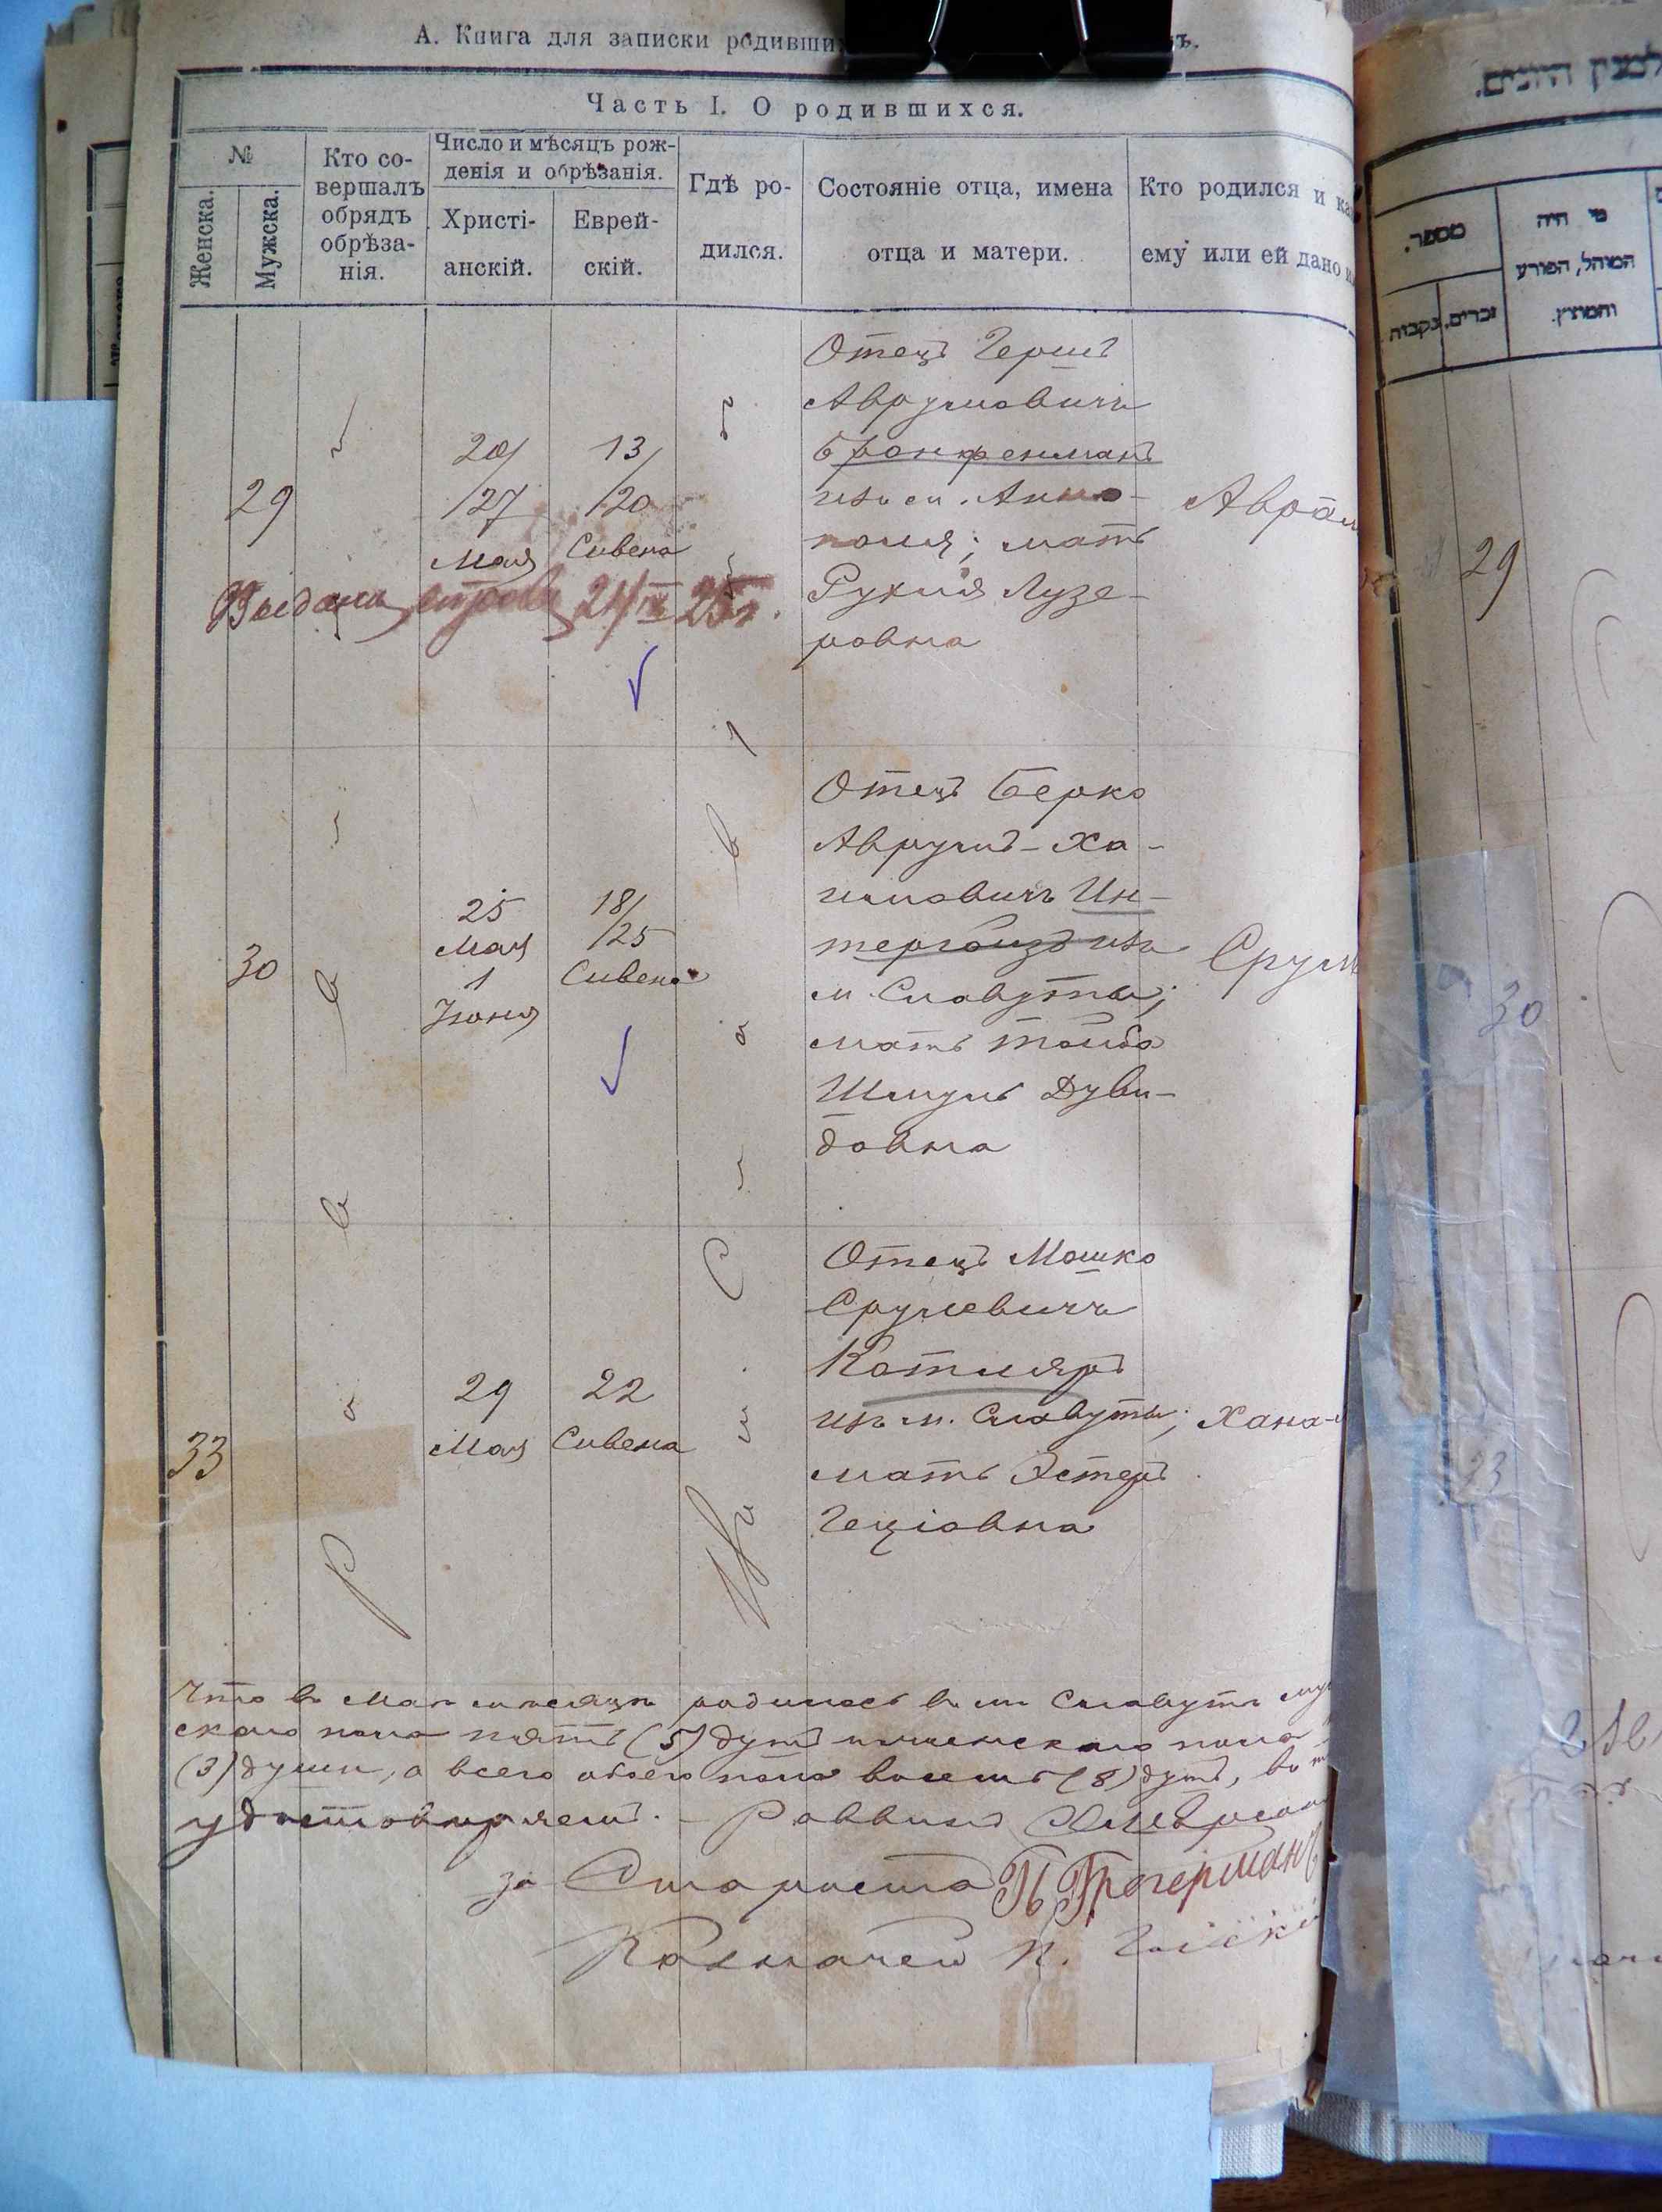 А. Книга для записки родивши
ъ.
Часть I. О родившихся.
№
Женска.
Мужска.
Кто со-
вершалъ
обрядъ
обрѣза-
нія.
Число и мѣсяцъ рож-
денія и обрѣзанія.
Христі-
анскій.
Еврей-
скій.
Гдѣ ро-
дился.
Состояніе отца, имена
отца и матери.
Кто родился и ка
ему или ей дано и
29
20/
/27
Мая
13/
/20
Сивена
Отецъ Гершъ
Аврумовичъ
Бронфенманъ
изъ м. Анно-
поля; мать
Рухля Лузе-
ровна
Аврам
Выдана 24/IX 25 г.
30
25
Мая
1
Іюня
18/
/25
Сивена
Отецъ Берко
Аврумъ-Ха-
имовичъ Ин-
тергойзъ изъ
м. Славуты;
мать Тойба
Шмуль Дуви-
довна
Срул
33
29
Мая
22
Сивена
Отецъ Мошко
Срулевичъ
Котляръ
изъ м. Славуты;
мать Эстеръ
Гецiовна
Хана-
Раввинъ
М. Славутѣ
Что въ Маѣ мѣсяцѣ родилось въ м. Славутѣ муж
скаго пола пять (5) душъ и женскаго пола
(3) души, а всего обоего пола восемь (8) душъ, въ
удостовѣряемъ. – Раввинъ
за Староста
Казначей П.
למצין היונים.
מספר.
זכרים.
נקבות
מי היה
המוהל, הפורע
והמוצץ.
29
30